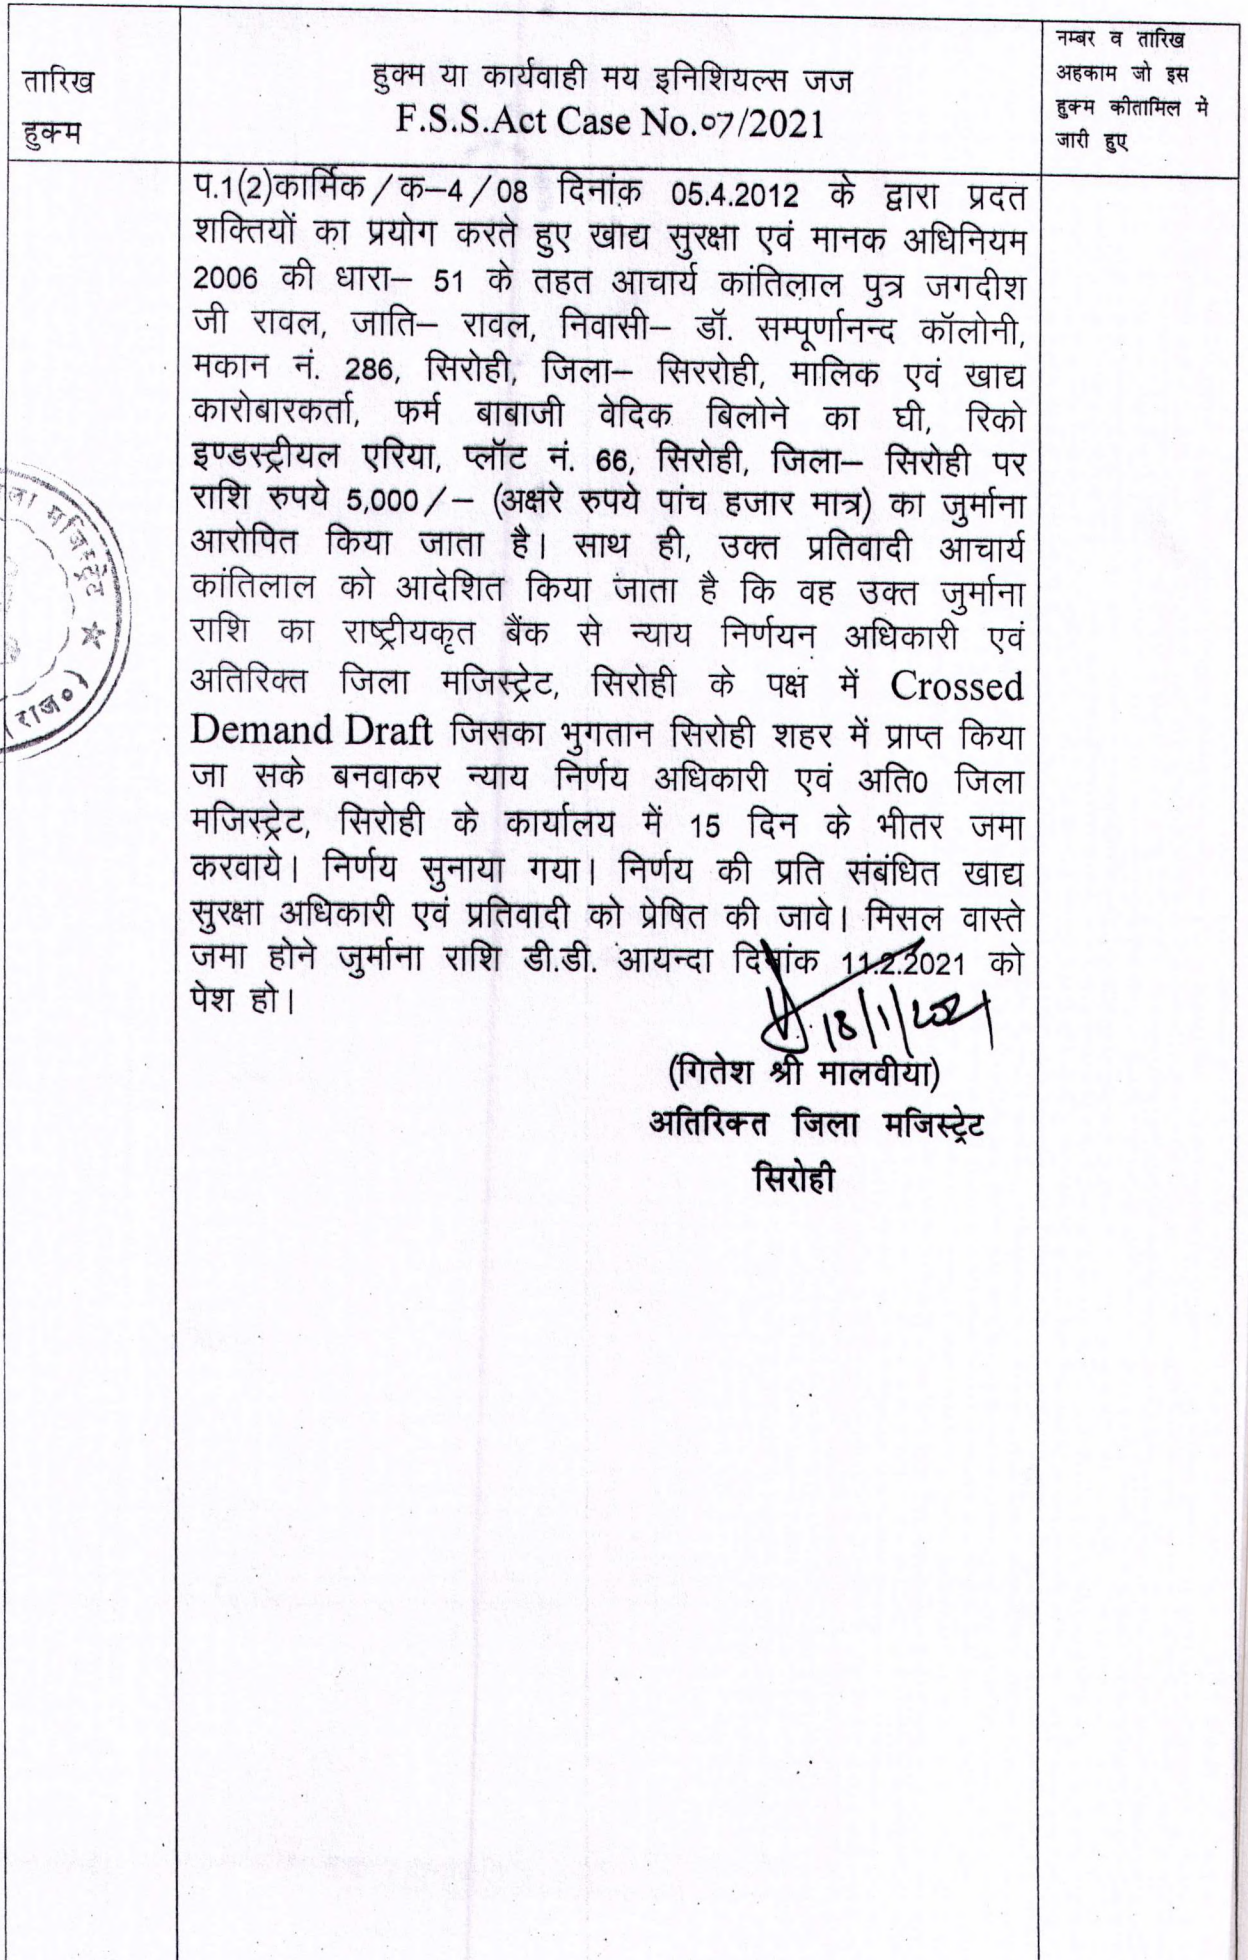 तारिख
हुक्म
हुक्म या कार्यवाही मय इनिशियल्स जज
F.S.S.Act Case No.07/2021
नम्बर व तारिख
अहकाम जो इस
हुक्म कीतामिल में
जारी हुए
प.1(2)कार्मिक/क–4/08 दिनांक 05.4.2012 के द्वारा प्रदत
शक्तियों का प्रयोग करते हुए खाद्य सुरक्षा एवं मानक अधिनियम
2006 की धारा– 51 के तहत आचार्य कांतिलाल पुत्र जगदीश
जी रावल, जाति– रावल, निवासी– डॉ. सम्पूर्णानन्द कॉलोनी,
मकान नं. 286, सिरोही, जिला– सिररोही, मालिक एवं खाद्य
कारोबारकर्ता, फर्म बाबाजी वेदिक बिलोने का घी, रिको
इण्डस्ट्रीयल एरिया, प्लॉट नं. 66, सिरोही, जिला– सिरोही पर
राशि रुपये 5,000/– (अक्षरे रुपये पांच हजार मात्र) का जुर्माना
आरोपित किया जाता है। साथ ही, उक्त प्रतिवादी आचार्य
कांतिलाल को आदेशित किया जाता है कि वह उक्त जुर्माना
राशि का राष्ट्रीयकृत बैंक से न्याय निर्णयन अधिकारी एवं
अतिरिक्त जिला मजिस्ट्रेट, सिरोही के पक्ष में Crossed
Demand Draft जिसका भुगतान सिरोही शहर में प्राप्त किया
जा सके बनवाकर न्याय निर्णय अधिकारी एवं अति0 जिला
मजिस्ट्रेट, सिरोही के कार्यालय में 15 दिन के भीतर जमा
करवाये। निर्णय सुनाया गया। निर्णय की प्रति संबंधित खाद्य
सुरक्षा अधिकारी एवं प्रतिवादी को प्रेषित की जावे। मिसल वास्ते
जमा होने जुर्माना राशि डी.डी. आयन्दा दिनांक 11.2.2021 को
पेश हो।
18/1/2021
(गितेश श्री मालवीया)
अतिरिक्त जिला मजिस्ट्रेट
सिरोही
मजिस्ट्रेट ★ (राज०)